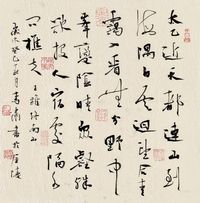 太乙近天都連山到
海隅白雲迴望合青
靄入看無分野中
峰變陰晴眾壑殊
欲投人宿處隔水
問樵夫 王維終南山
癸巳 月 書於